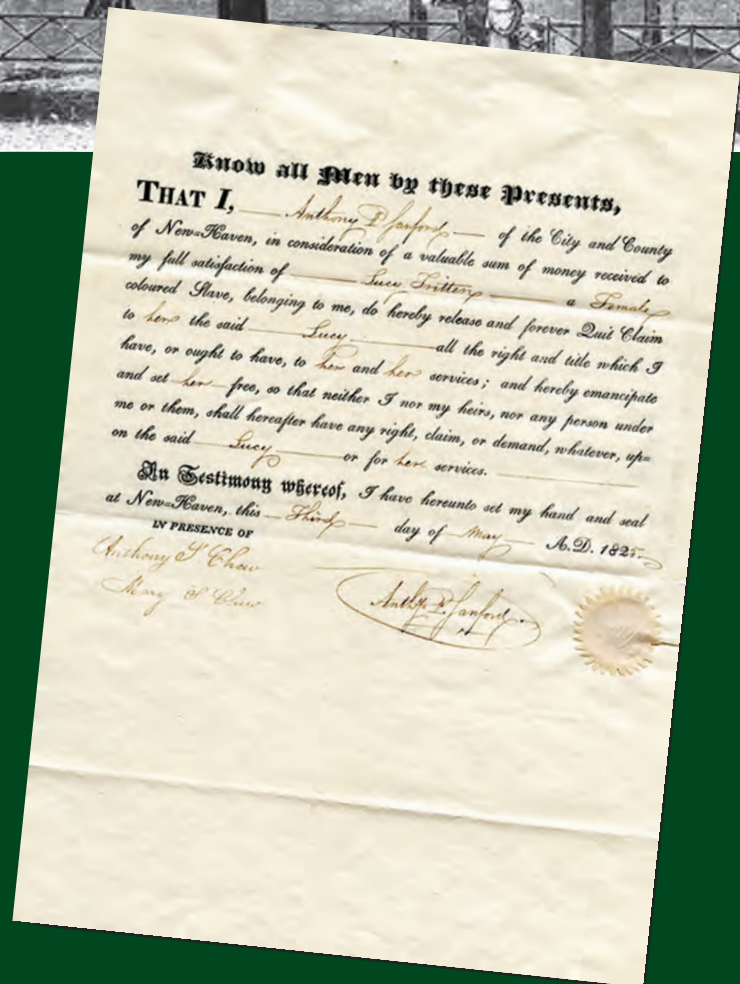 Know all Men by these Presents,
THAT I, Anthony P. Sanford of the City and County
of New=Haven, in consideration of a valuable sum of money received to
my full satisfaction of Lucy Tritten a Female
coloured Slave, belonging to me, do hereby release and forever Quit Claim
to her the said Lucy all the right and title which I
have, or ought to have, to her and her services; and hereby emancipate
and set her free, so that neither I nor my heirs, nor any person under
me or them, shall hereafter have any right, claim, or demand, whatever, up=
on the said Lucy or for her services.
In Testimony whereof, I have hereunto set my hand and seal
at New=Haven, this Third day of May A.D. 1825
IN PRESENCE OF
Anthony S Chew
Mary S Chew
Anthy. P. Sanford